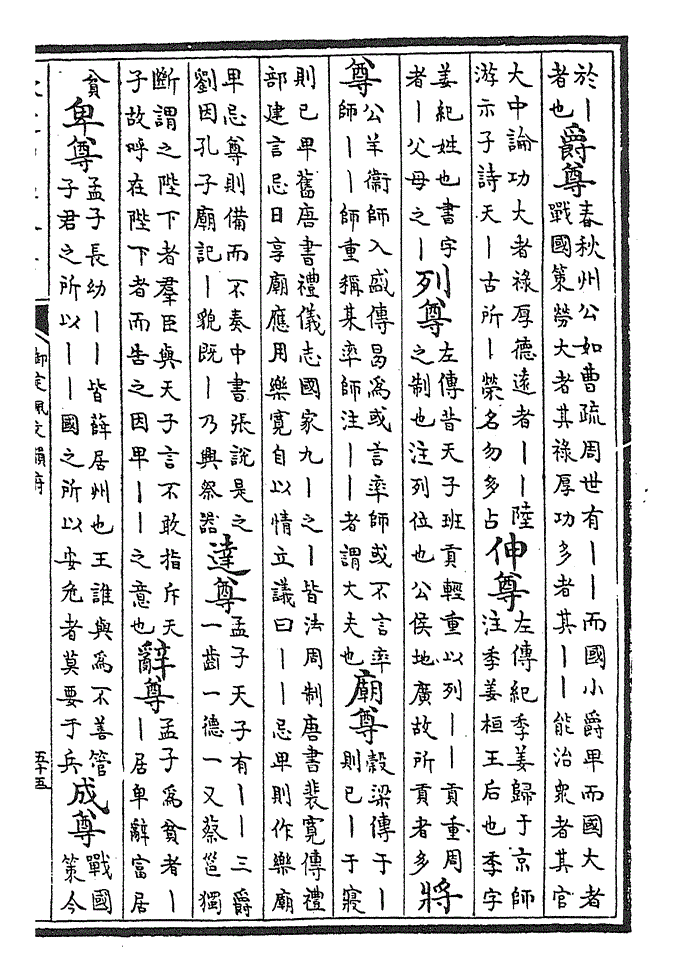 於｜者也爵尊春秋州公如曹疏周世有｜｜而國小爵卑而國大者戰國策勞大者其祿厚功多者其｜｜能治衆者其官
大中論功大者祿厚德遠者｜｜陸游示子詩天｜古所｜榮名勿多占伸尊左傳紀季姜歸于京師注季姜桓王后也季字
姜紀姓也書字者｜父母之｜列尊左傳昔天子班貢輕重以列｜｜貢重周之制也注列位也公侯地廣故所貢者多將
尊公羊衞師入盛傳曷爲或言率師或不言率師｜｜師重稱某率師注｜｜者謂大夫也廟尊穀梁傳于｜則已｜于寢
則已卑舊唐書禮儀志國家九｜之｜皆法周制唐書裴寬傳禮部建言忌日享廟應用樂寬自以情立議曰｜｜忌卑則作樂廟
卑忌尊則備而不奏中書張說是之劉因孔子廟記｜貌既｜乃興祭器達尊孟子天子有｜｜三爵一齒一德一又蔡邕獨
斷謂之陛下者羣臣與天子言不敢指斥天子故呼在陛下者而告之因卑｜｜之意也辭尊孟子爲貧者｜｜居卑辭富居
貧卑尊孟子長幼｜｜皆薛居州也王誰與爲不善管子君之所以｜｜國之所以安危者莫要于兵成尊戰國策今
御定佩文韻府